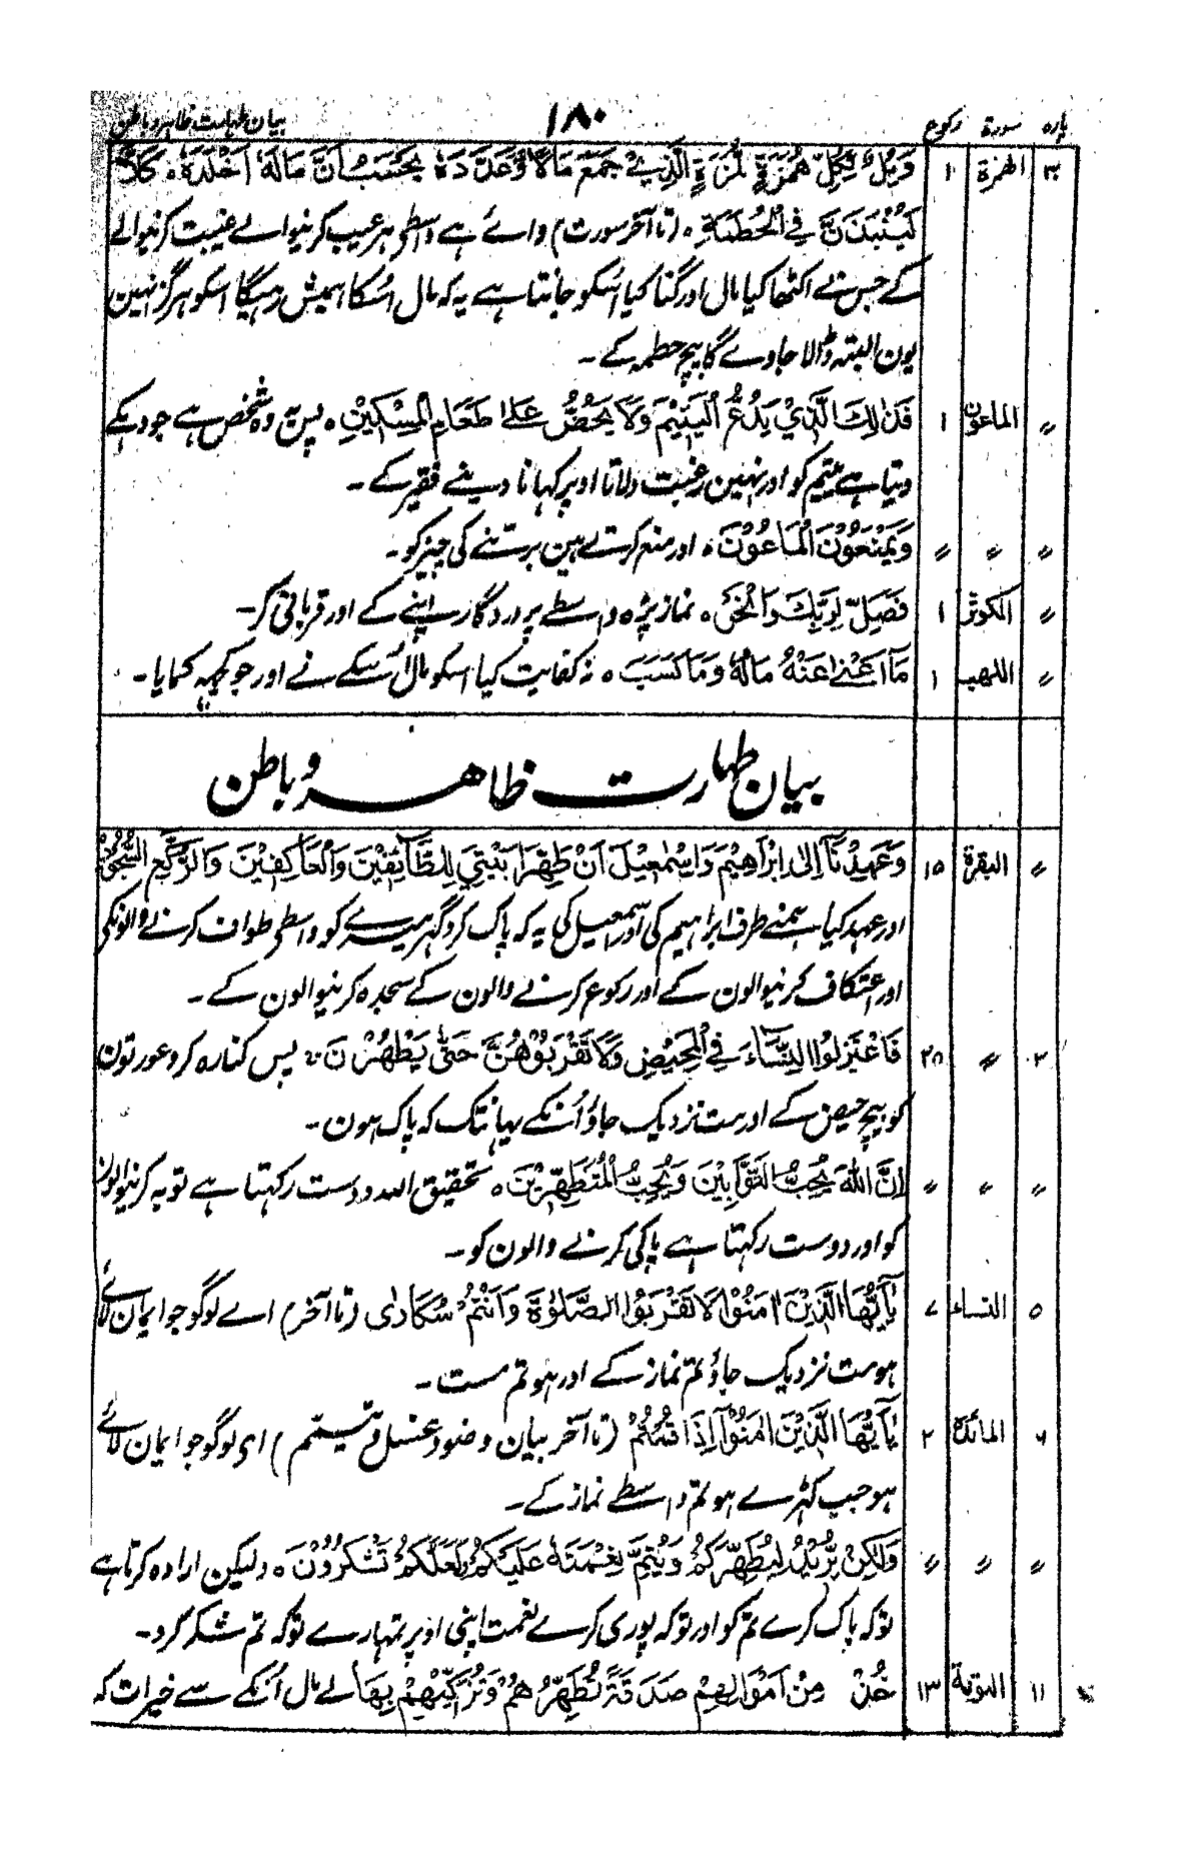 پارہ سورۃ رکوع ۱۸۰ بیان طہارت ظاہر و باطن
۳۰ الهمزة ۱ وَيْلٌ لِّكُلِّ هُمَزَةٍ لُّمَزَةٍ الَّذِيْ جَمَعَ مَالًا وَّعَدَّدَهٗ يَحْسَبُ اَنَّ مَالَهٗ اَخْلَدَهٗ ه كَلَّا
لَيُنْبَذَنَّ فِي الْحُطَمَةِ ه (تا آخر سورت) وائے ہے واسطے ہر عیب کرنیوالے غیبت کرنیوالے
کے جس نے اکٹھا کیا مال اور گنا کیا اسکو جانتا ہے یہ کہ مال اُسکا ہمیش رہیگا اسکو ہرگز نہین
یون البتہ ڈالا جاوے گا بیچ حطمہ کے ۔
〃 الماعون ۱ فَذٰلِكَ الَّذِيْ يَدُعُّ الْيَتِيْمَ وَلَا يَحُضُّ عَلٰى طَعَامِ الْمِسْكِيْنِ ه پس یہ وہ شخص ہے جو دہکے
دیتا ہے یتیم کو اور نہین رغبت دلاتا اوپر کہانا دینے فقیر کے ۔
〃 〃 〃 وَيَمْنَعُوْنَ الْمَاعُوْنَ ه اور منع کرتے ہین برتنے کی چیز کو ۔
〃 الکوثر ۱ فَصَلِّ لِرَبِّكَ وَانْحَرْ ه نماز پڑہ واسطے پروردگار اپنے کے اور قربانی کر ۔
〃 اللهب ۱ مَآ اَغْنٰى عَنْهُ مَالُهٗ وَمَا كَسَبَ ه نہ کفایت کیا اسکو مال اُسکے نے اور جو کچہہ کمایا ۔
بیان طہارت ظاہر و باطن
〃 البقرة ۱۵ وَعَهِدْنَآ اِلٰى اِبْرَاهِيْمَ وَاِسْمٰعِيْلَ اَنْ طَهِّرَا بَيْتِيَ لِلطَّآئِفِيْنَ وَالْعَاكِفِيْنَ وَالرُّكَّعِ السُّجُوْدِ
اور عہد کیا ہمنے طرف ابراہیم کی اور اسمعیل کی یہ کہ پاک کرو گہر میرے کو واسطے طواف کرنے والونکی
اور اعتکاف کرنیوالون کے اور رکوع کرنے والون کے سجدہ کرنیوالون کے ۔
۲ 〃 ۲۸ فَاعْتَزِلُوا النِّسَآءَ فِي الْمَحِيْضِ وَلَا تَقْرَبُوْهُنَّ حَتّٰى يَطْهُرْنَ ؞ پس کنارہ کرو عورتون
کو بیچ حیض کے اور مت نزدیک جاؤ اُنکے یہانتک کہ پاک ہون ۔
〃 〃 〃 اِنَّ اللّٰهَ يُحِبُّ التَّوَّابِيْنَ وَيُحِبُّ الْمُتَطَهِّرِيْنَ ه تحقیق اللہ دوست رکہتا ہے توبہ کرنیوالون
کو اور دوست رکہتا ہے پاکی کرنے والون کو ۔
۵ النساء ۷ يٰٓاَيُّهَا الَّذِيْنَ اٰمَنُوْا لَا تَقْرَبُوا الصَّلٰوةَ وَاَنْتُمْ سُكَارٰى (تا آخر) اے لوگو جو ایمان لائے
ہو مت نزدیک جاؤ تم نماز کے اور ہو تم مست ۔
۶ المائدة ۲ يٰٓاَيُّهَا الَّذِيْنَ اٰمَنُوْٓا اِذَا قُمْتُمْ (تا آخر بیان وضو و غسل و تیمم) ای لوگو جو ایمان لائے
ہو جب کہڑے ہو تم واسطے نماز کے ۔
〃 〃 〃 وَلٰكِنْ يُّرِيْدُ لِيُطَهِّرَكُمْ وَيُتِمَّ نِعْمَتَهٗ عَلَيْكُمْ لَعَلَّكُمْ تَشْكُرُوْنَ ه ولیکن ارادہ کرتا ہے
توکہ پاک کرے تم کو اور توکہ پوری کرے نعمت اپنی اوپر تمہارے توکہ تم شکر کرو ۔
۱۱ التوبة ۱۳ خُذْ مِنْ اَمْوَالِهِمْ صَدَقَةً تُطَهِّرُهُمْ وَتُزَكِّيْهِمْ بِهَا لے مال اُنکے سے خیرات کہ